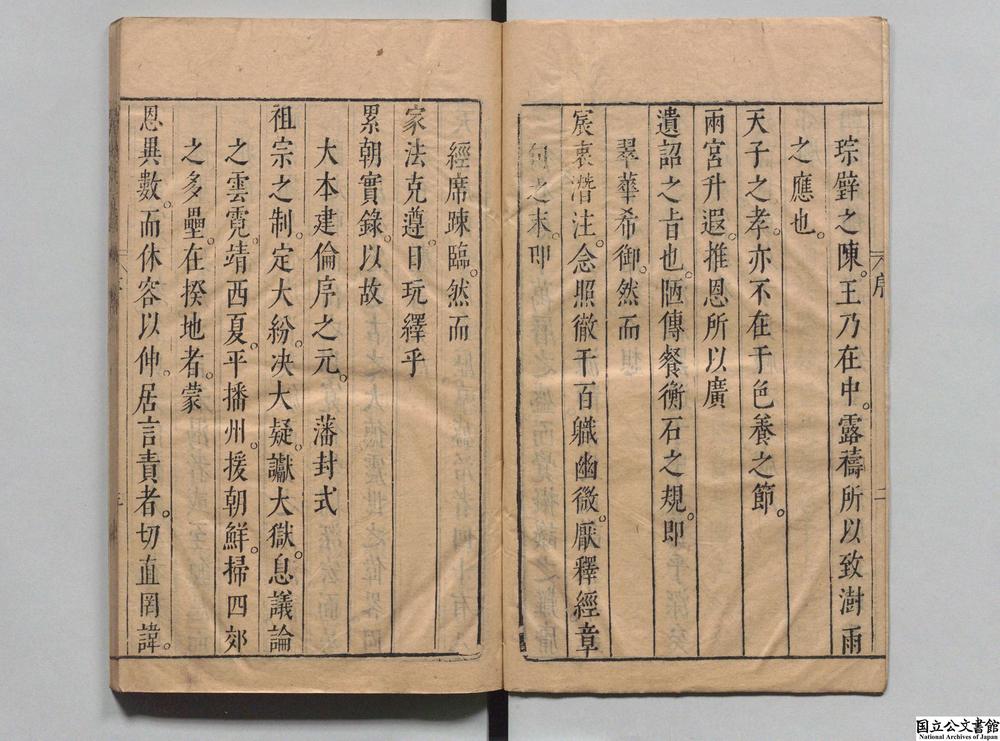 琮璧之陳。王乃在中。露禱所以致澍雨
之應也。
天子之孝。亦不在于色養之節。
兩宮升遐。推恩所以廣
遺詔之旨也。陋傳餐衡石之規。即
翠華希御。然而
宸衷潛注。念照徹于百職幽微。厭釋經章
句之末。即
經席踈臨。然而
家法克遵。日玩繹乎
累朝實錄。以故
大本建倫序之元。藩封式
祖宗之制。定大紛。决大疑。讞大獄。息議論
之雲霓。靖西夏。平播州。援朝鮮。掃四郊
之多壘。在揆地者。蒙
恩異數。而休容以伸。居言責者。切直罔諱。
序
二
国立公文書館
National Archives of Japan